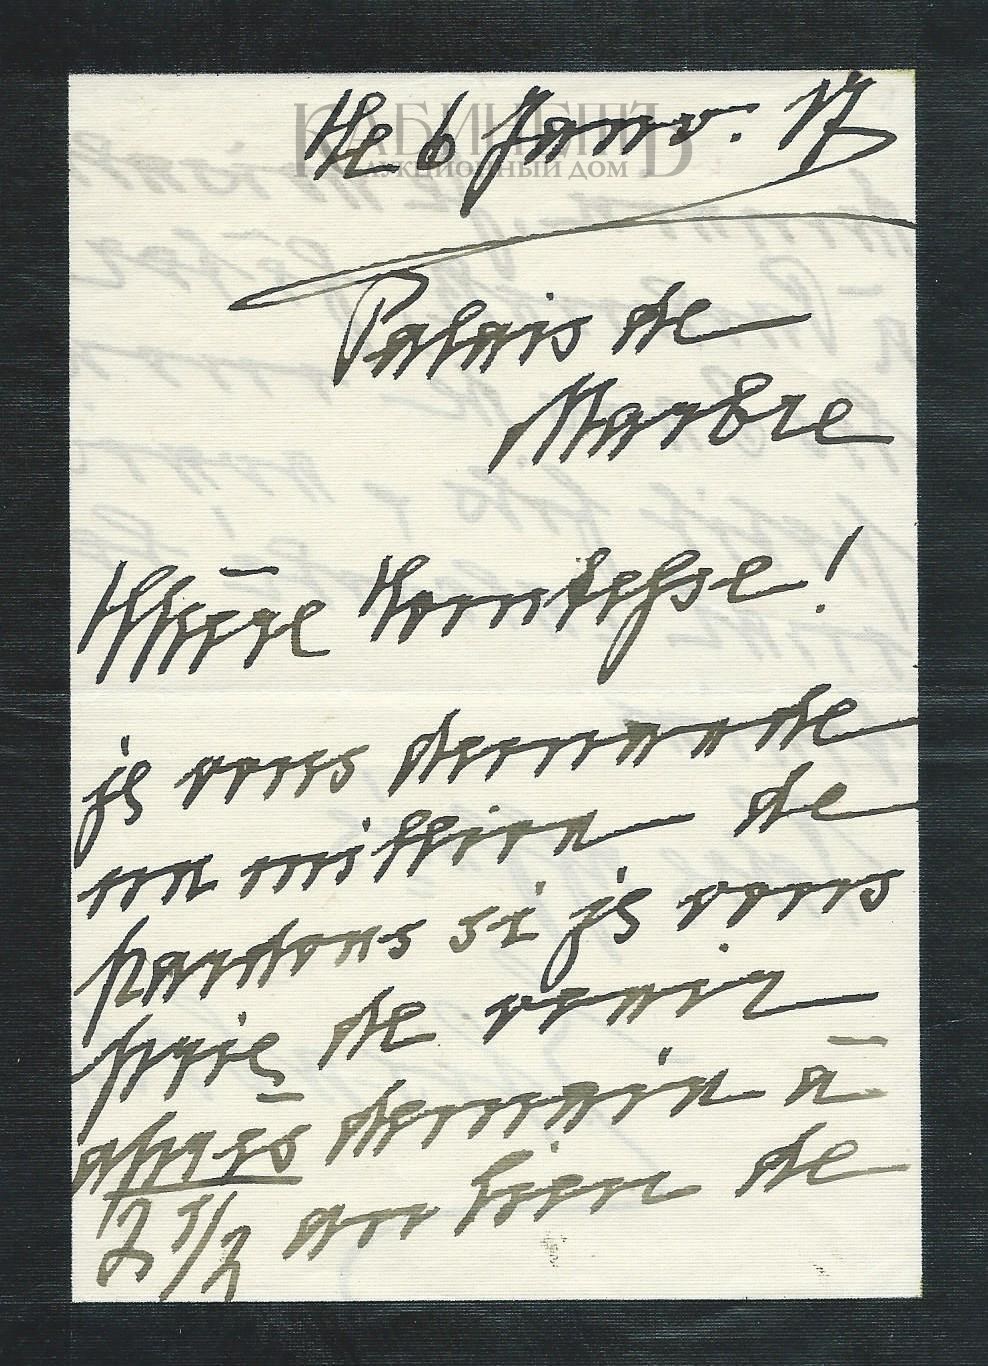 КАБИНЕТЪ
АУКЦИОННЫЙ ДОМ
Ce 6 Janv. 17
Palais de
Marbre
Chère Comtesse!
je vous demande
un million de
pardons si je vous
prie de venir
après demain à
2 1/2 au lieu de